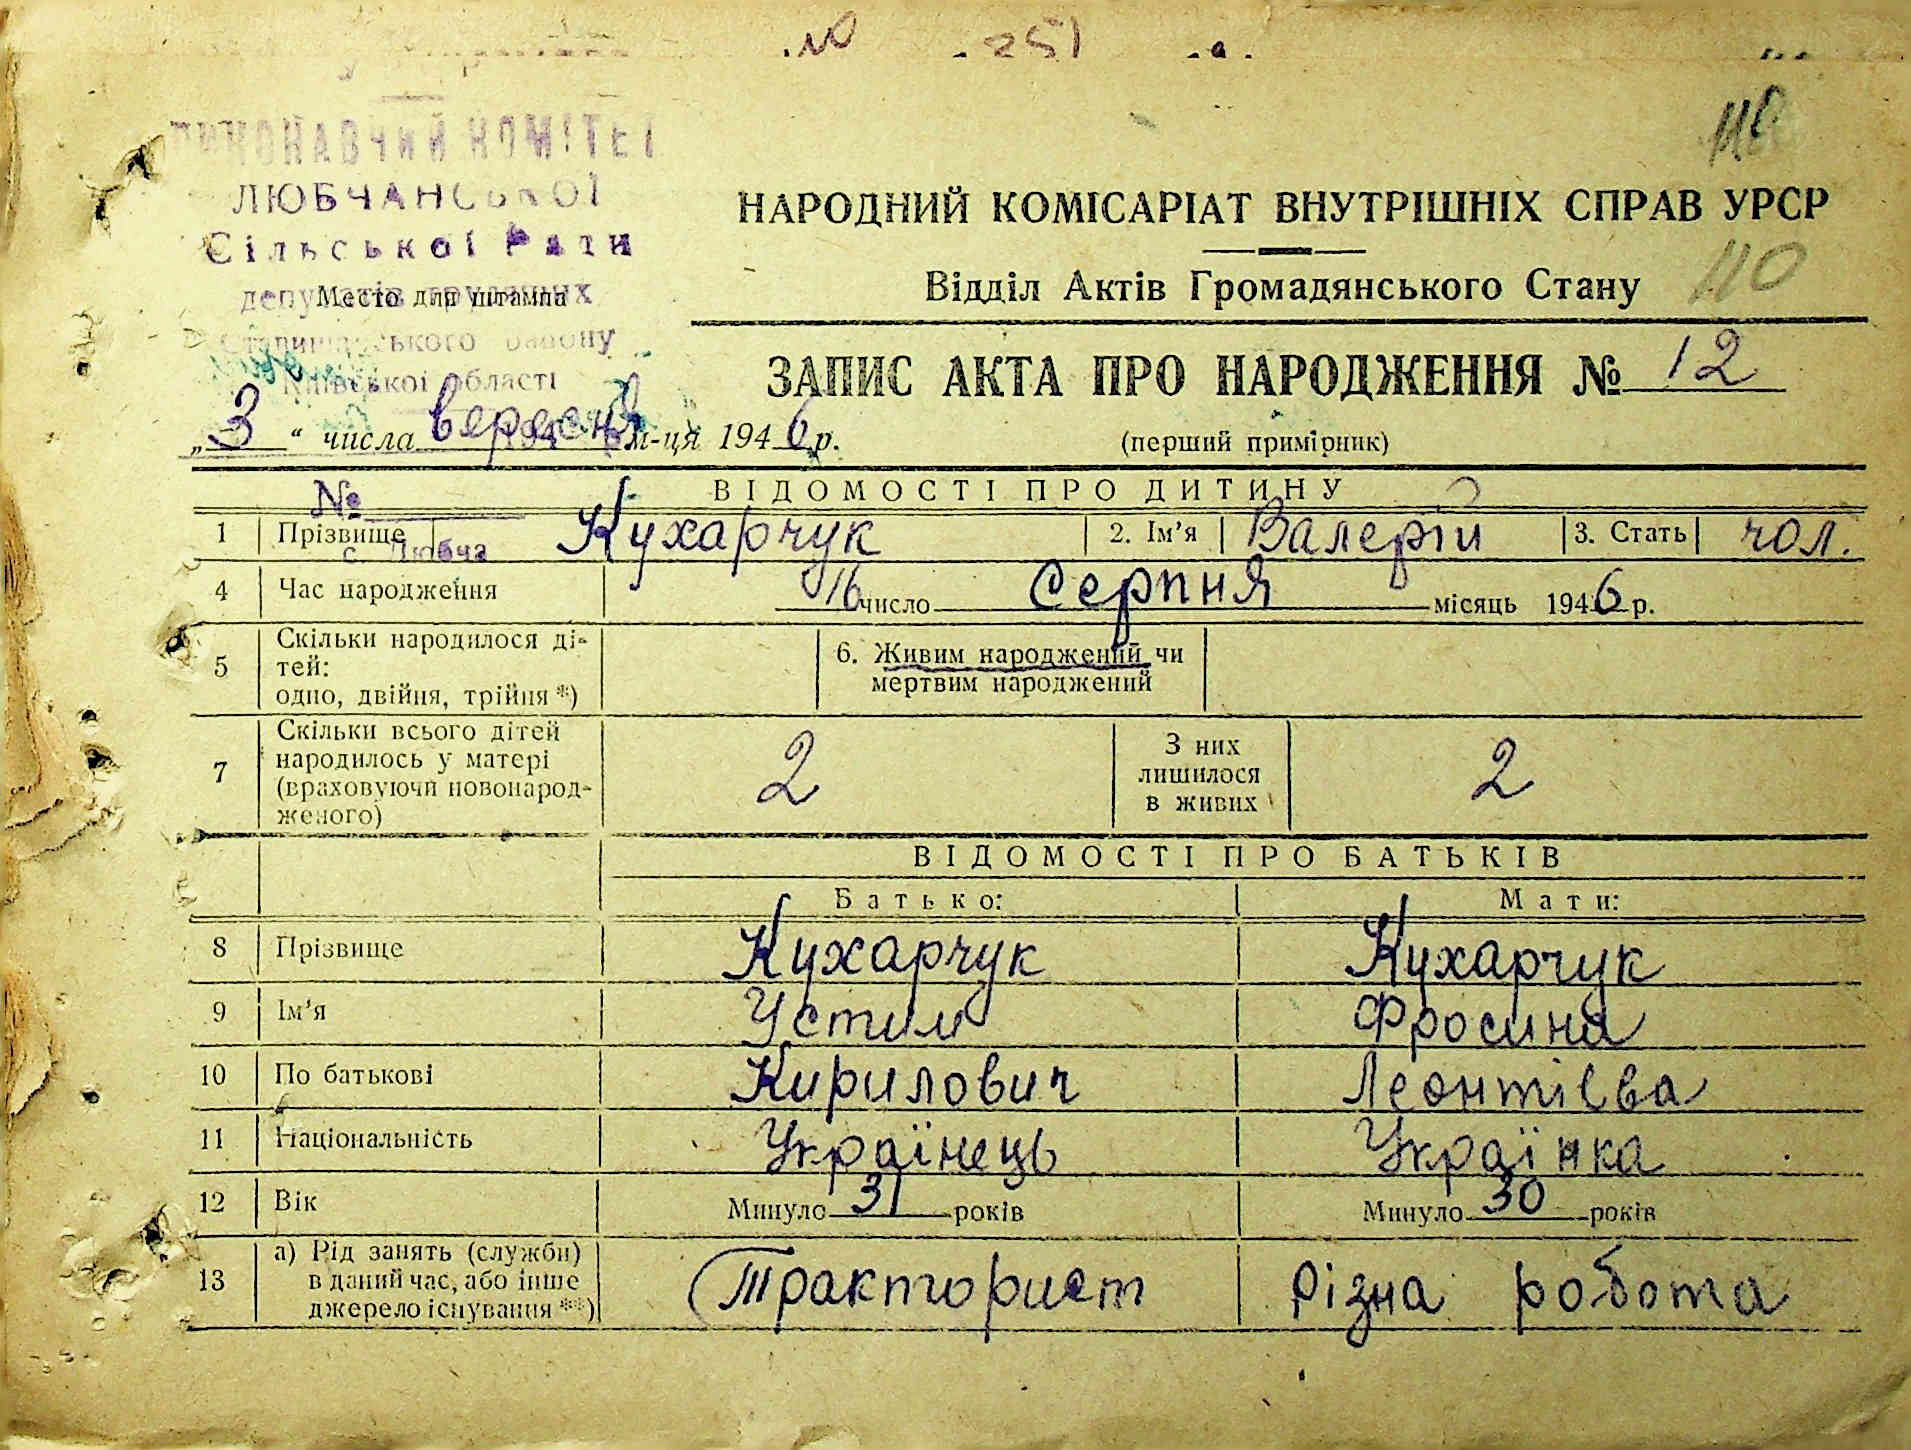 251
ВИКОНАВЧИЙ КОМІТЕТ
ЛЮБЧАНСЬКОЇ
Сільської Ради
депутатів трудящих
Место для штампа
району
Київської області
110
НАРОДНИЙ КОМІСАРІАТ ВНУТРІШНІХ СПРАВ УРСР
Відділ Актів Громадянського Стану
110
ЗАПИС АКТА ПРО НАРОДЖЕННЯ № 12
„3“ числа вересня м-ця 1946 р.
(перший примірник)
№
с. Любча
ВІДОМОСТІ ПРО ДИТИНУ
1 Прізвище Кухарчук 2. Ім’я Валерій 3. Стать чол.
4 Час народження 16 число Серпня місяць 1946 р.
5 Скільки народилося ді-
тей:
одно, двійня, трійня *)
6. Живим народжений чи
мертвим народжений
7 Скільки всього дітей
народилось у матері
(враховуючи новонарод-
женого)
2
З них
лишилося
в живих
2
ВІДОМОСТІ ПРО БАТЬКІВ
Батько: Мати:
8 Прізвище Кухарчук Кухарчук
9 Ім’я Устим Фросина
10 По батькові Кирилович Леонтієва
11 Національність Українець Українка
12 Вік Минуло 31 років Минуло 30 років
13 а) Рід занять (служби)
в даний час, або інше
джерело існування **)
Тракторист Різна робота